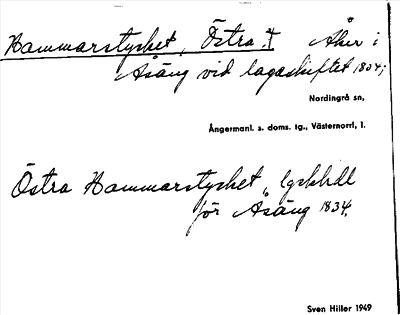 Hammarstycket, Östra. † Åker i
Åsäng vid laga skiftet 1804;
Nordingrå sn,
Ångermanl. s. doms. tg., Västernorrl, l.
Östra Hammarstycket, lgskhdl
för Åsäng 1834.
Sven Hiller 1949